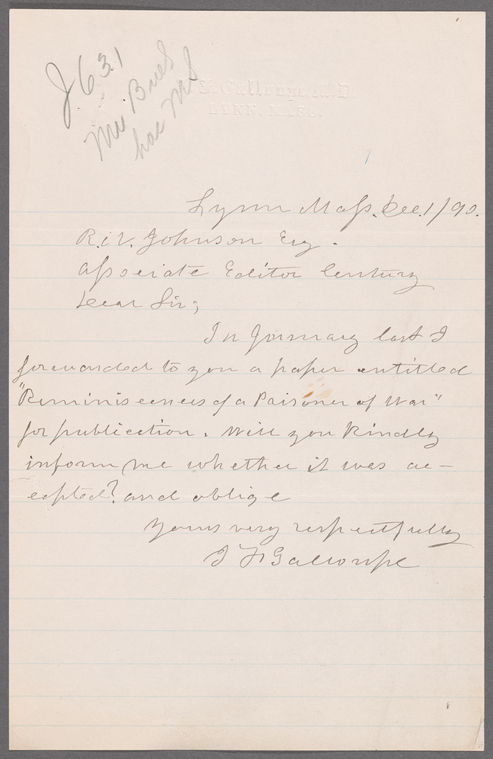 J 631
Mr. Buel
has MS
I. F. Galloupe, M.D.
LYNN, MASS.
Lynn Mass. Dec. 1/90.
R. U. Johnson Esq.
Associate Editor Century
Dear Sir;
In January last I
forwarded to you a paper entitled
"Reminiscences of a Prisoner of War"
for publication. Will you kindly
inform me whether it was ac-
cepted? and oblige
Yours very respectfully
I F Galloupe